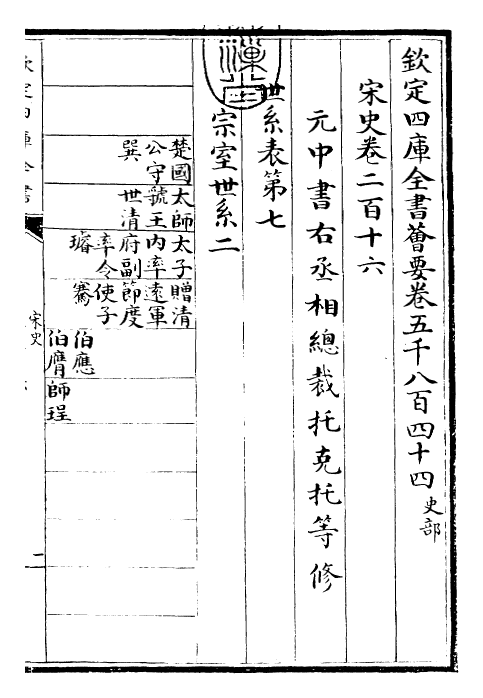 欽定四庫全書薈要卷五千八百四十四 史部
宋史卷二百十六
元中書右丞相總裁托克托等修
世系表第七
宗室世系二
楚國公守巽
太師虢王世清
太子內率府副率令璿
贈清遠軍節度使子騫
伯應
伯膺 師珵
欽定四庫全書
宋史
二